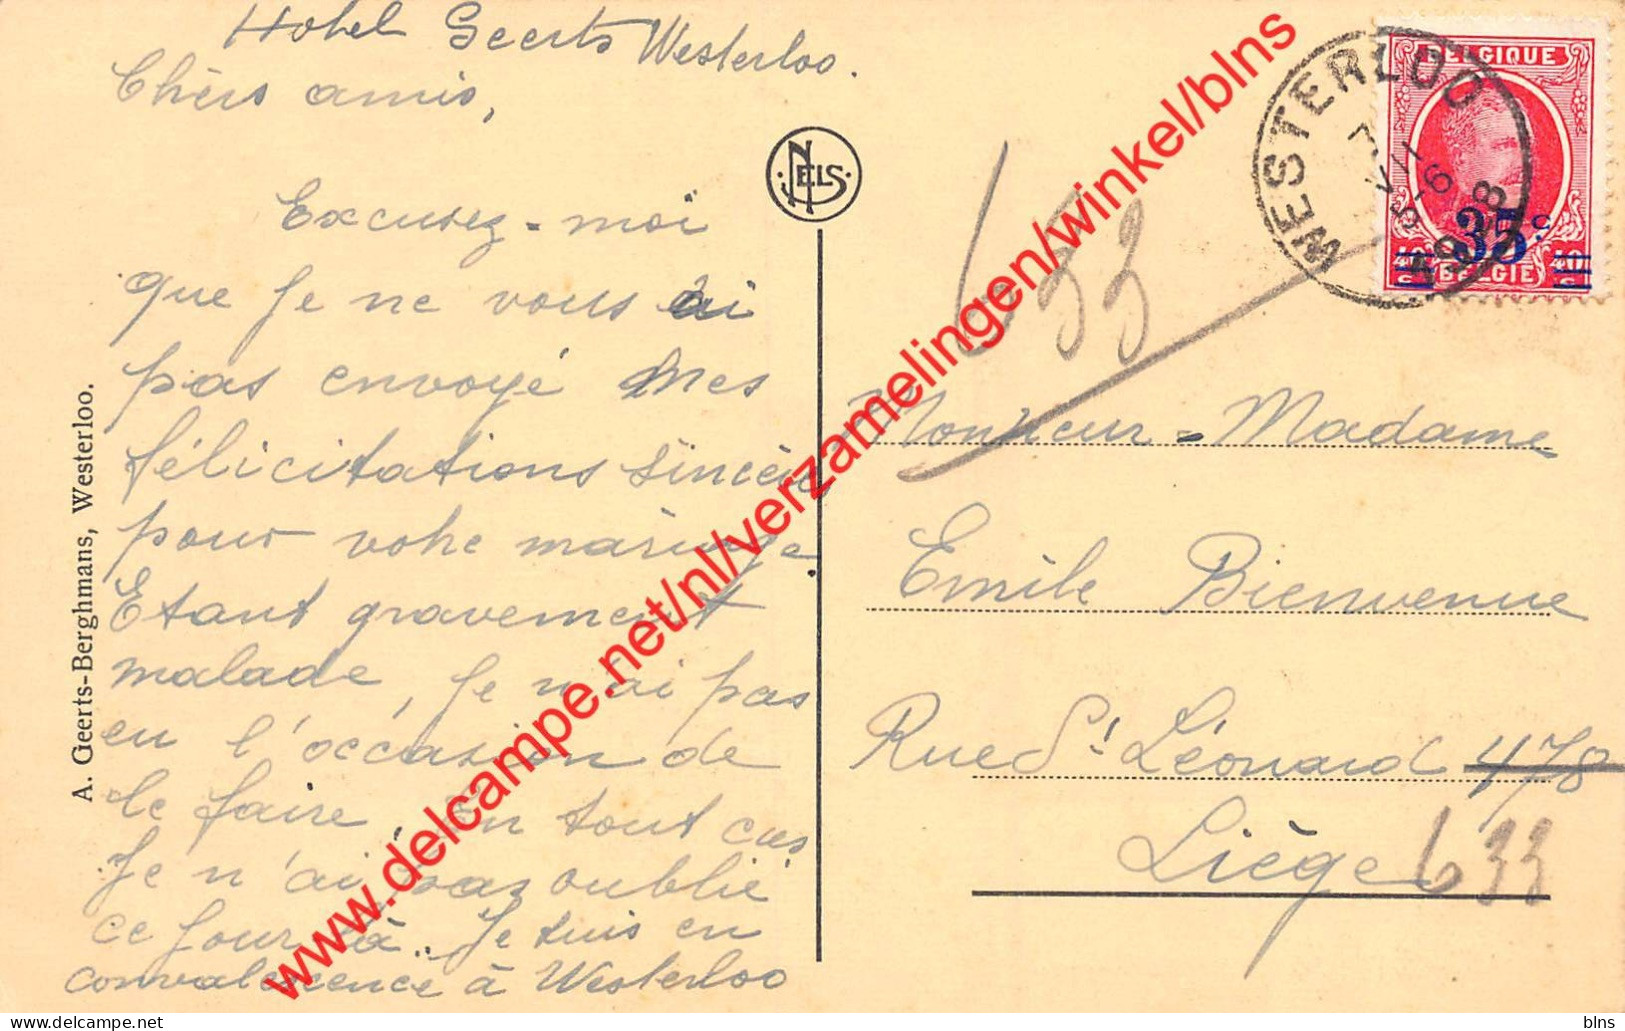 Hotel Geerts Westerloo.
Chèrs amis,
Excusez-moi
que je ne vous ai
pas envoyé mes
félicitations sincères
pour votre mariage.
Etant gravement
malade, je n'ai pas
eu l'occasion de
le faire, En tout cas
Je n'ai pas oublié
ce jour là. Je suis en
convalescence à Westerloo
A. Geerts-Berghmans, Westerloo.
NELS
633
BELGIQUE
35c.
40 c BELGIË 40 c
WESTERLOO
7 VII
5-6
1928
Monsieur-Madame
Emile Bienvenue
Rue St Léonard 478
Liège 633
www.delcampe.net/nl/verzamelingen/winkel/blns
blns